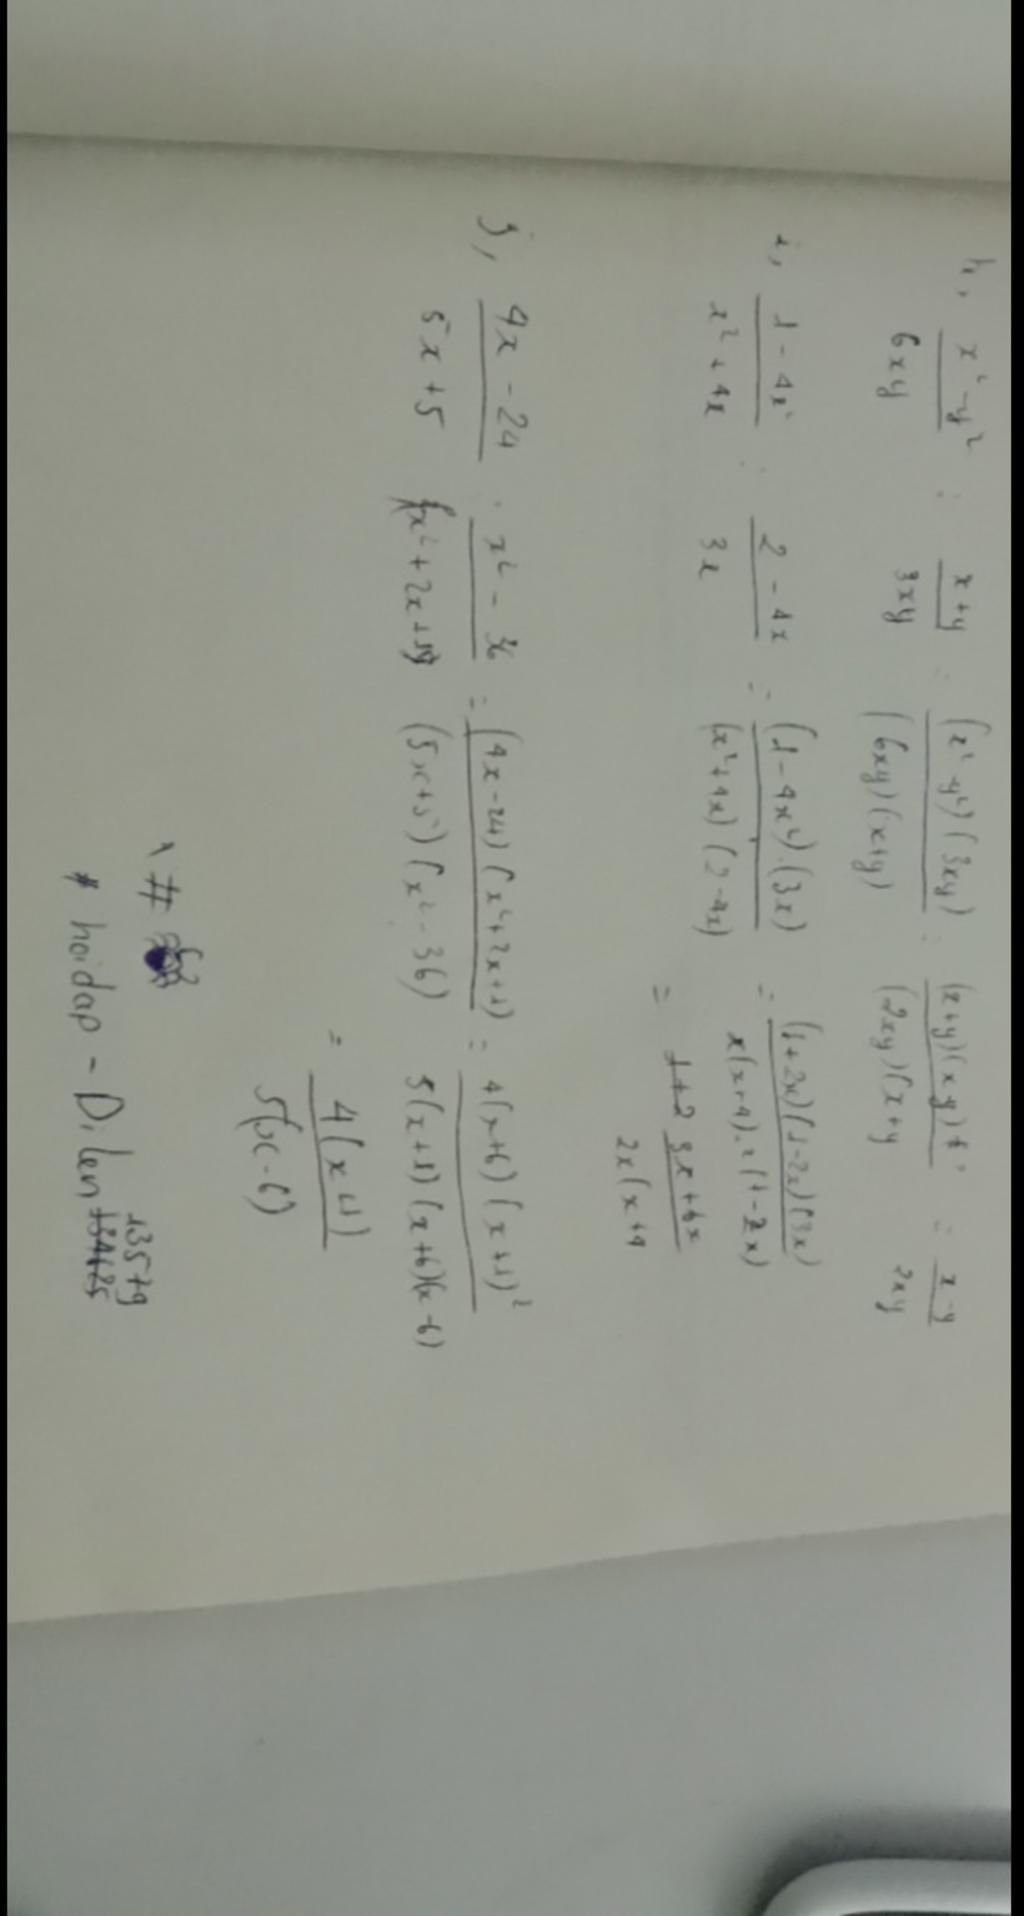 h, x² - y² / 6xy : x+y / 3xy = (x² - y²)(3xy) / (6xy)(x+y) = (x+y)(x-y) / (2xy)(x+y = x-y / 2xy
i, 1 - 4x² / x² + 4x : 2 - 4x / 3x = (1 - 4x²).(3x) / (x² + 4x)(2 - 4x) = (1+2x)(1-2x)(3x) / x(x+4).2(1-2x)
= 3x+6x / 2x(x+4
j, 4x - 24 / 5x + 5 : x² - 36 / x² + 2x + 1 = (4x - 24)(x² + 2x + 1) / (5x+5)(x² - 36) = 4(x+6)(x+1)² / 5(x+1)(x+6)(x-6)
= 4(x+1) / 5(x-6)
#
# hoidap - Dilen 13579